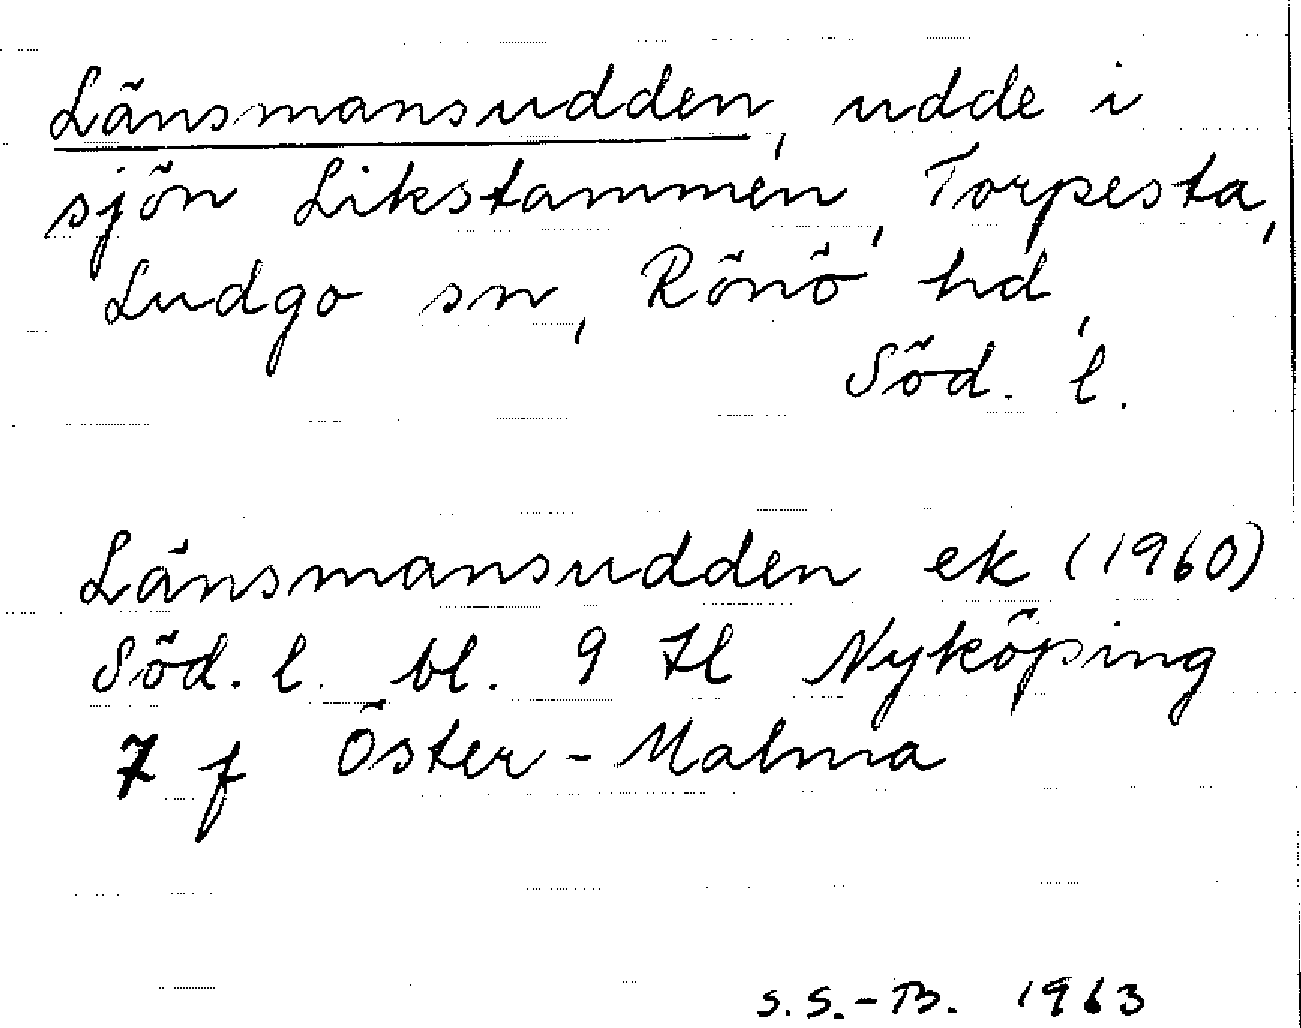 Länsmansudden, udde i
sjön Likstammen, Torpesta,
Ludgo sn, Rönö hd,
Söd. l.
Länsmansudden ek (1960)
Söd. l. bl. 9 H Nyköping
7 f Öster-Malma
S.S.-B. 1963